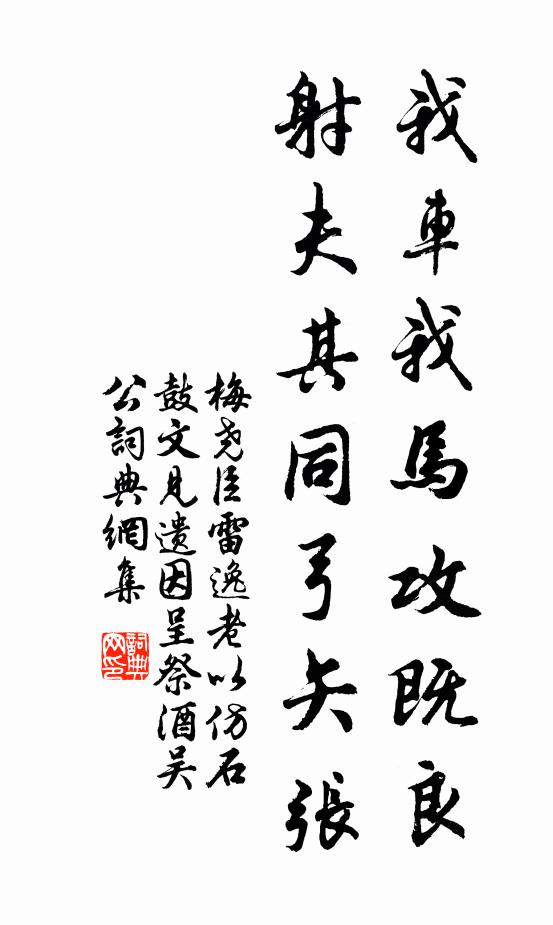 我車我馬攻既良
射夫其同弓矢張
梅尧臣雷逸老以仿石
鼓文見遺因呈祭酒吴
公詞典網集
詞典
网印